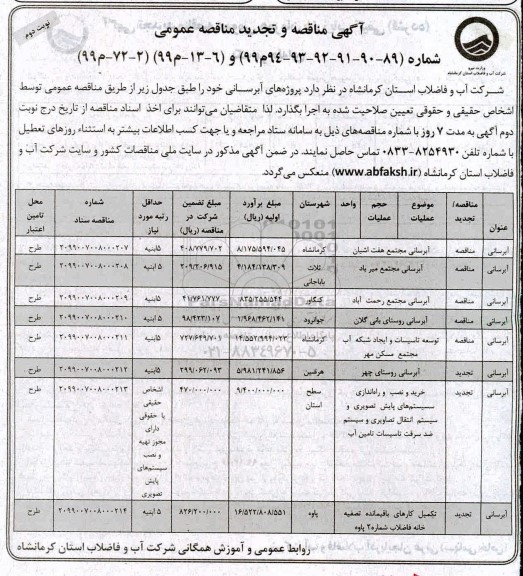 نوبت دوم
آگهی مناقصه و تجدید مناقصه عمومی
شماره (۸۹-۹۰-۹۱-۹۲-۹۳-۹۴م۹۹) و (۶-۱۳-م۹۹) (۲-۷۲-م۹۹)
وزارت نیرو
شرکت آب و فاضلاب استان کرمانشاه
شرکت آب و فاضلاب استان کرمانشاه در نظر دارد پروژه‌های آبرسانی خود را طبق جدول زیر از طریق مناقصه عمومی توسط
اشخاص حقیقی و حقوقی تعیین صلاحیت شده به اجرا بگذارد. لذا متقاضیان می‌توانند برای اخذ اسناد مناقصه از تاریخ درج نوبت
دوم آگهی به مدت ۷ روز با شماره مناقصه‌های ذیل به سامانه ستاد مراجعه و یا جهت کسب اطلاعات بیشتر به استثناء روزهای تعطیل
با شماره تلفن ۸۲۵۴۹۳۰-۰۸۳۳ تماس حاصل نمایند. در ضمن آگهی مذکور در سایت ملی مناقصات کشور و سایت شرکت آب و
فاضلاب استان کرمانشاه (www.abfaksh.ir) منعکس می‌گردد.
عنوان مناقصه/ تجدید موضوع عملیات حجم عملیات واحد شهرستان مبلغ برآورد اولیه (ریال) مبلغ تضمین شرکت در مناقصه (ریال) حداقل رتبه مورد نیاز شماره مناقصه ستاد محل تامین اعتبار
آبرسانی مناقصه آبرسانی مجتمع هفت آشیان کرمانشاه ۸/۱۷۵/۵۹۴/۰۴۵ ۴۰۸/۷۷۹/۷۰۲ ۵ابنیه ۲۰۹۹۰۰۷۰۰۸۰۰۰۲۰۷ طرح
آبرسانی مناقصه آبرسانی مجتمع میر باد ثلاث باباجانی ۴/۱۸۴/۱۳۸/۳۰۹ ۲۰۹/۲۰۶/۹۱۵ ۵ابنیه ۲۰۹۹۰۰۷۰۰۸۰۰۰۲۰۸ طرح
آبرسانی مناقصه آبرسانی مجتمع رحمت آباد کنگاور ۸۳۵/۲۵۵/۵۴۴ ۴۱/۷۶۱/۷۷۷ ۵ابنیه ۲۰۹۹۰۰۷۰۰۸۰۰۰۲۰۹ طرح
آبرسانی مناقصه آبرسانی روستای بانی گلان جوانرود ۱/۹۶۸/۴۶۲/۱۴۱ ۹۸/۴۲۳/۱۰۷ ۵ ابنیه ۲۰۹۹۰۰۷۰۰۸۰۰۰۲۱۰ طرح
آبرسانی مناقصه توسعه تاسیسات و ایجاد شبکه آب مجتمع مسکن مهر کرمانشاه ۱۴/۵۵۲/۹۹۴/۰۲۳ ۷۲۷/۶۴۹/۷۰۱ ۵ابنیه ۲۰۹۹۰۰۷۰۰۸۰۰۰۲۱۱ طرح
آبرسانی تجدید آبرسانی روستای چهر هرسین ۵/۹۸۱/۲۴۱/۸۵۶ ۲۹۹/۰۶۲/۰۹۳ ۵ابنیه ۲۰۹۹۰۰۷۰۰۸۰۰۰۲۱۲ طرح
آبرسانی تجدید خرید و نصب و راه‌اندازی سیستم‌های پایش تصویری و سیستم انتقال تصاویری و سیستم ضد سرقت تاسیسات تامین آب سطح استان ۹/۴۰۰/۰۰۰/۰۰۰ ۴۷۰/۰۰۰/۰۰۰ اشخاص حقیقی یا حقوقی دارای مجوز تهیه و نصب سیستم‌های پایش تصویری ۲۰۹۹۰۰۷۰۰۸۰۰۰۲۱۳ طرح
آبرسانی تجدید تکمیل کارهای باقیمانده تصفیه خانه فاضلاب شماره۲ پاوه پاوه ۱۶/۵۲۲/۸۰۸/۵۵۱ ۸۲۶/۲۰۰/۰۰۰ ۵ ابنیه ۲۰۹۹۰۰۷۰۰۸۰۰۰۲۱۴ طرح
روابط عمومی و آموزش همگانی شرکت آب و فاضلاب استان کرمانشاه